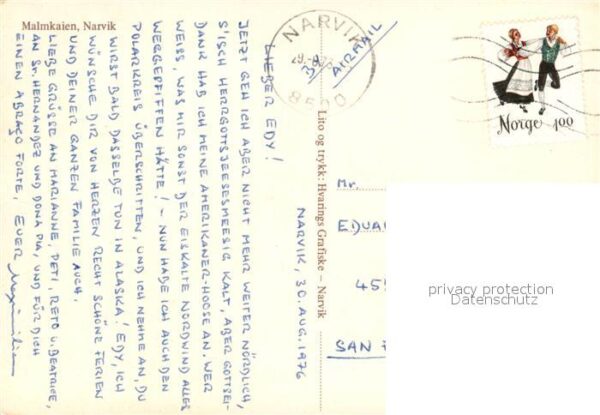 Malmkaien, Narvik
NARVIK
29.-8.
8500
AIRMAIL
Norge 100
NARVIK, 30. AUG. 1976
LIEBER EDY!
JETZT GEH ICH ABER NICHT MEHR WEITER NÖRDLICH,
S'ISCH HERRGOTTSJEESESMEESIG KALT, ABER GOTTSEI-
DANK HAB ICH MEINE AMERIKANER-HOOSE AN. WER
WEISS, WAS MIR SONST DER EISKALTE NORDWIND ALLES
WERGEPFIFFEN HÄTTE! – NUN HABE ICH AUCH DEN
POLARKREIS ÜBERSCHRITTEN, UND ICH NEHME AN, DU
WIRST BALD DASSELBE TUN IN ALASKA! EDY, ICH
WÜNSCHE DIR VON HERZEN RECHT SCHÖNE FERIEN
UND DEINER GANZEN FAMILIE AUCH.
LIEBE GRÜSSE AN MARIANNE, PETI, RETO U. BEATRICE,
AN SR. HERNANDEZ UND DONA PIA, UND FÜR DICH
EINEN ABRAÇO FORTE, EUER Maximilian
Lito og trykk: Hvarings Grafiske – Narvik
Mr.
EDUA
45
SAN
privacy protection
Datenschutz